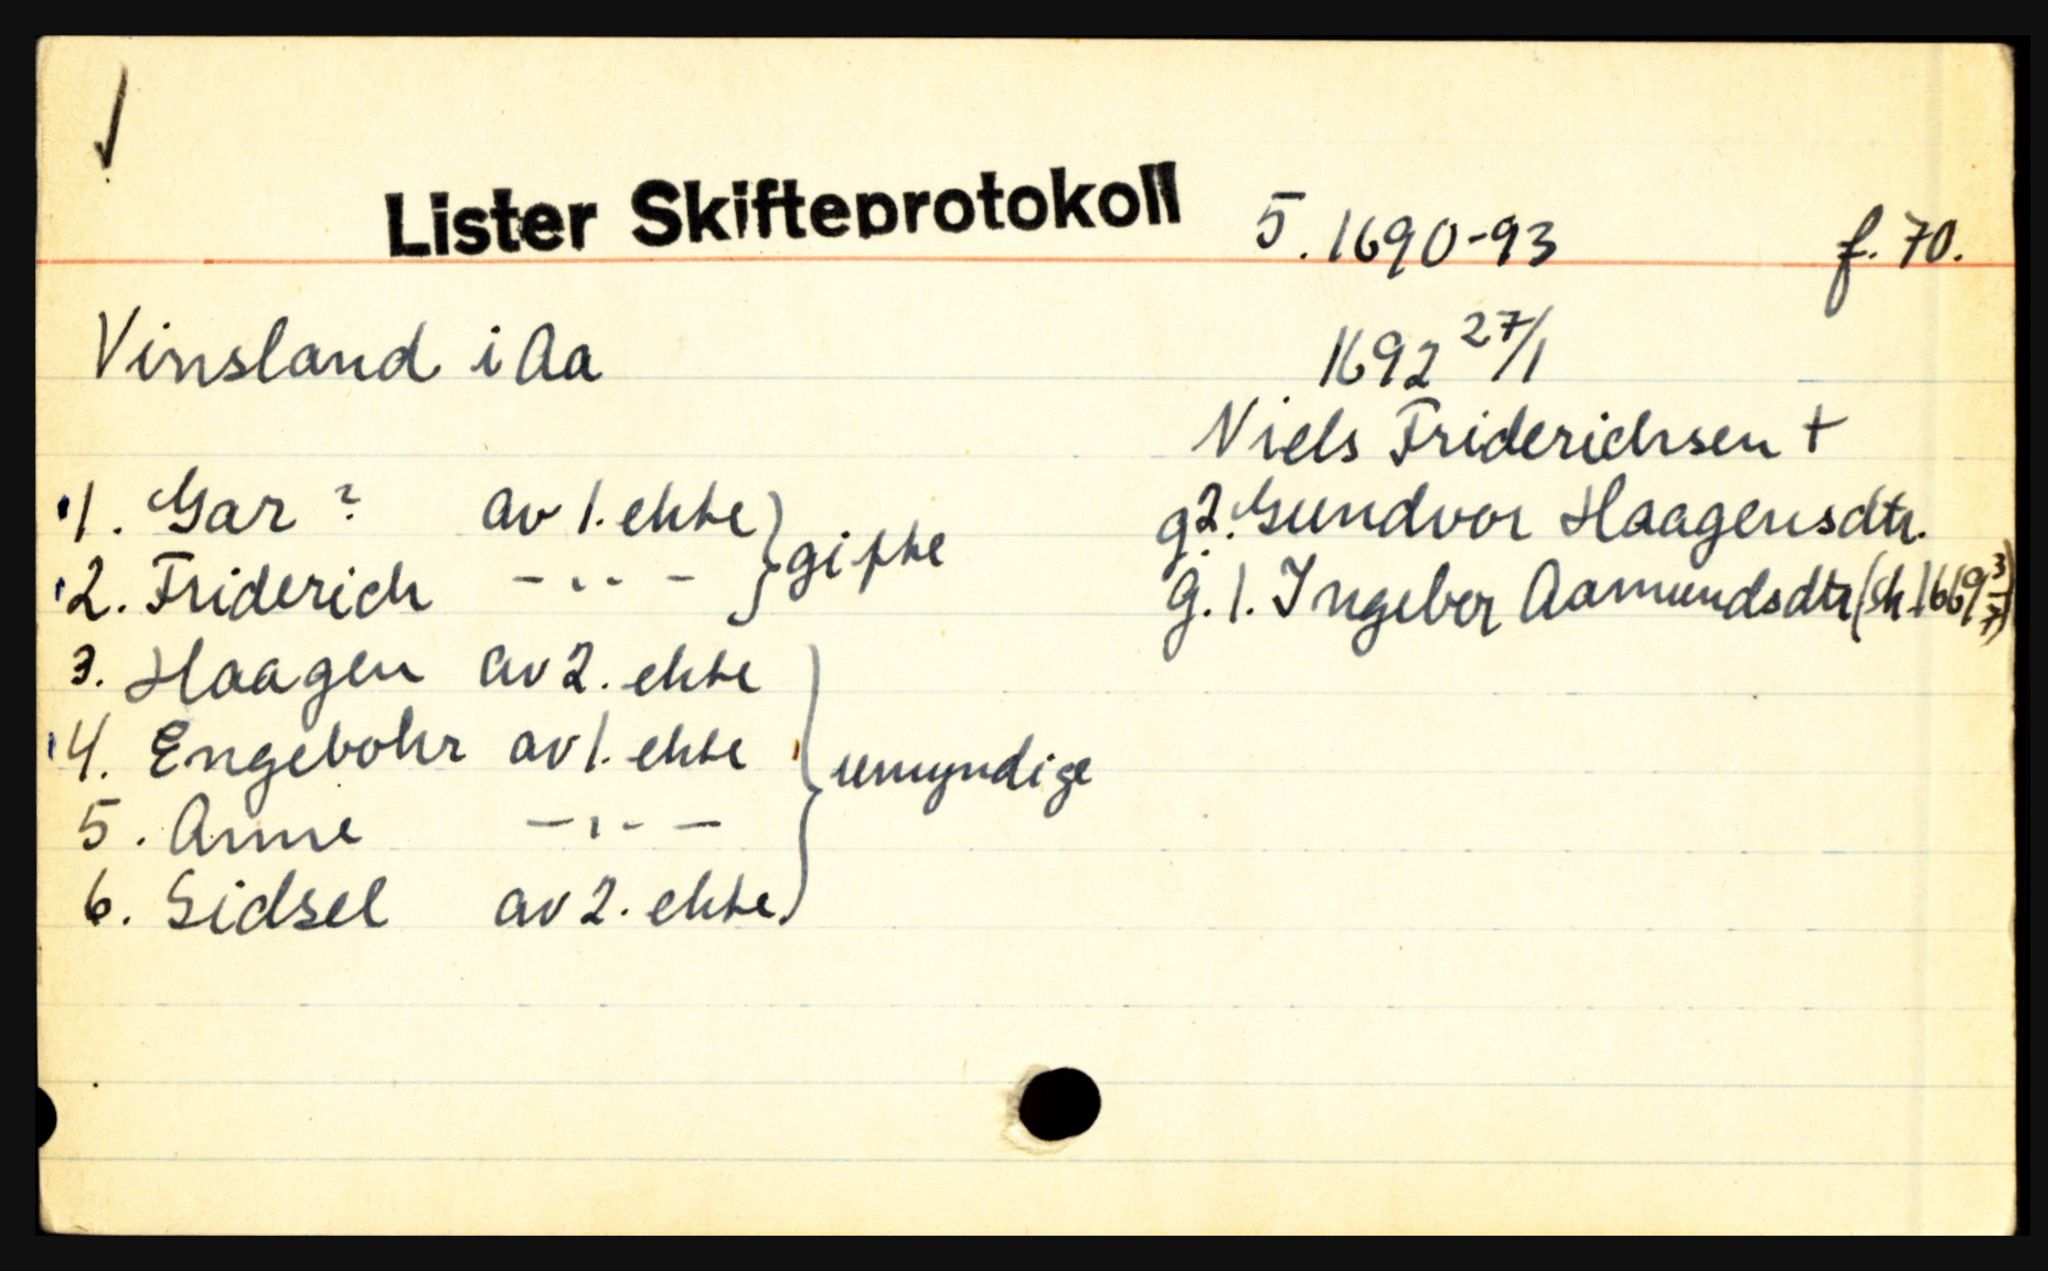 Lister Skifteprotokoll 5. 1690-93 f. 70.
Vinsland i Aa 1692 27/1
Niels Friderichsen +
1. Gar ? av 1. ekte } gifte g. 2. Gundvor Haagensdtr.
2. Friderich - " - g. 1. Ingebor Aamundsdtr (sk. 1669 3/7)
3. Haagen av 2. ekte
4. Engebohr av 1. ekte } umyndige
5. Anne - " -
6. Sidsel av 2. ekte